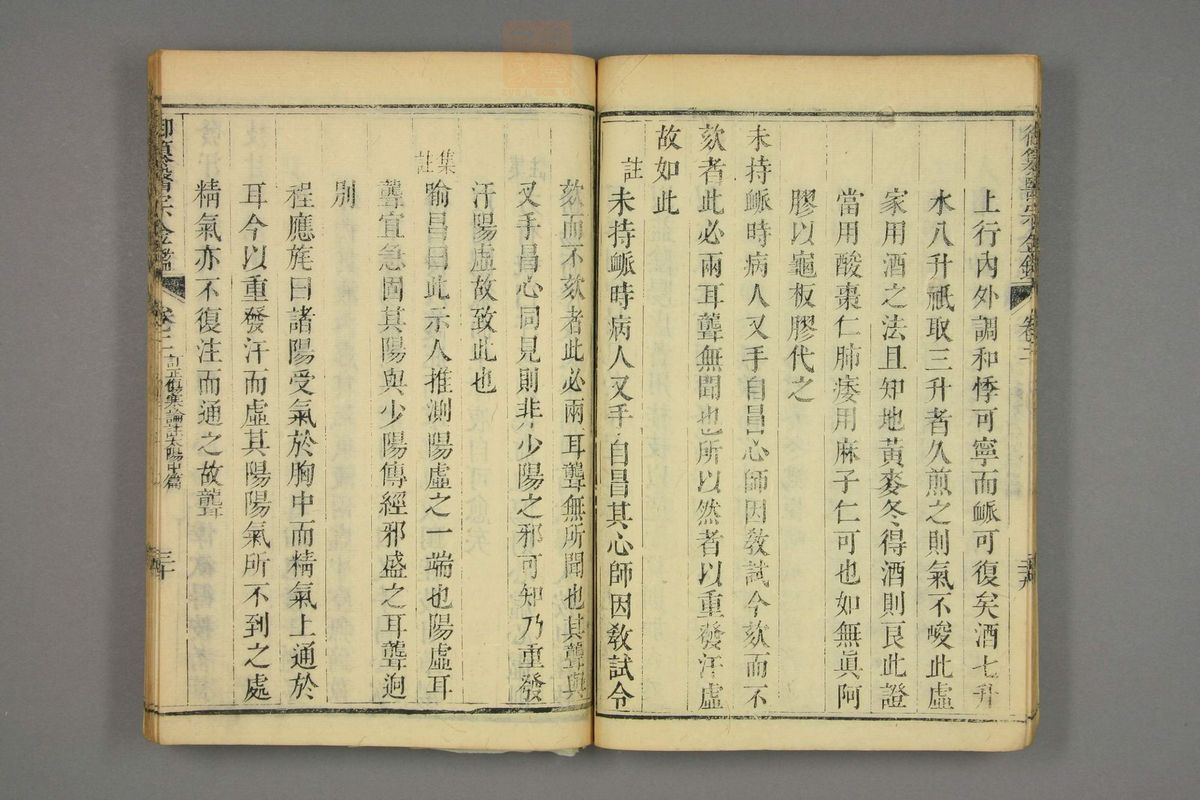 御纂醫宗金鑑 卷二
上行內外調和悸可寧而脈可復矣酒七升
水八升祇取三升者久煎之則氣不峻此虛
家用酒之法且知地黃麥冬得酒則良此證
當用酸棗仁肺痿用麻子仁可也如無眞阿
膠以龜板膠代之
未持脈時病人叉手自冒心師因敎試令欬而不
欬者此必兩耳聾無聞也所以然者以重發汗虛
故如此
註 未持脈時病人叉手自冒其心師因敎試令
欬而不欬者此必兩耳聾無所聞也其聾與
叉手冒心同見則非少陽之邪可知乃重發
汗陽虛故致此也
集註 喻昌曰此示人推測陽虛之一端也陽虛耳
聾宜急固其陽與少陽傳經邪盛之耳聾迥
別
程應旄曰諸陽受氣於胸中而精氣上通於
耳今以重發汗而虛其陽陽氣所不到之處
精氣亦不復注而通之故聾
御纂醫宗金鑑 卷二 訂正傷寒論註太陽中篇 三十